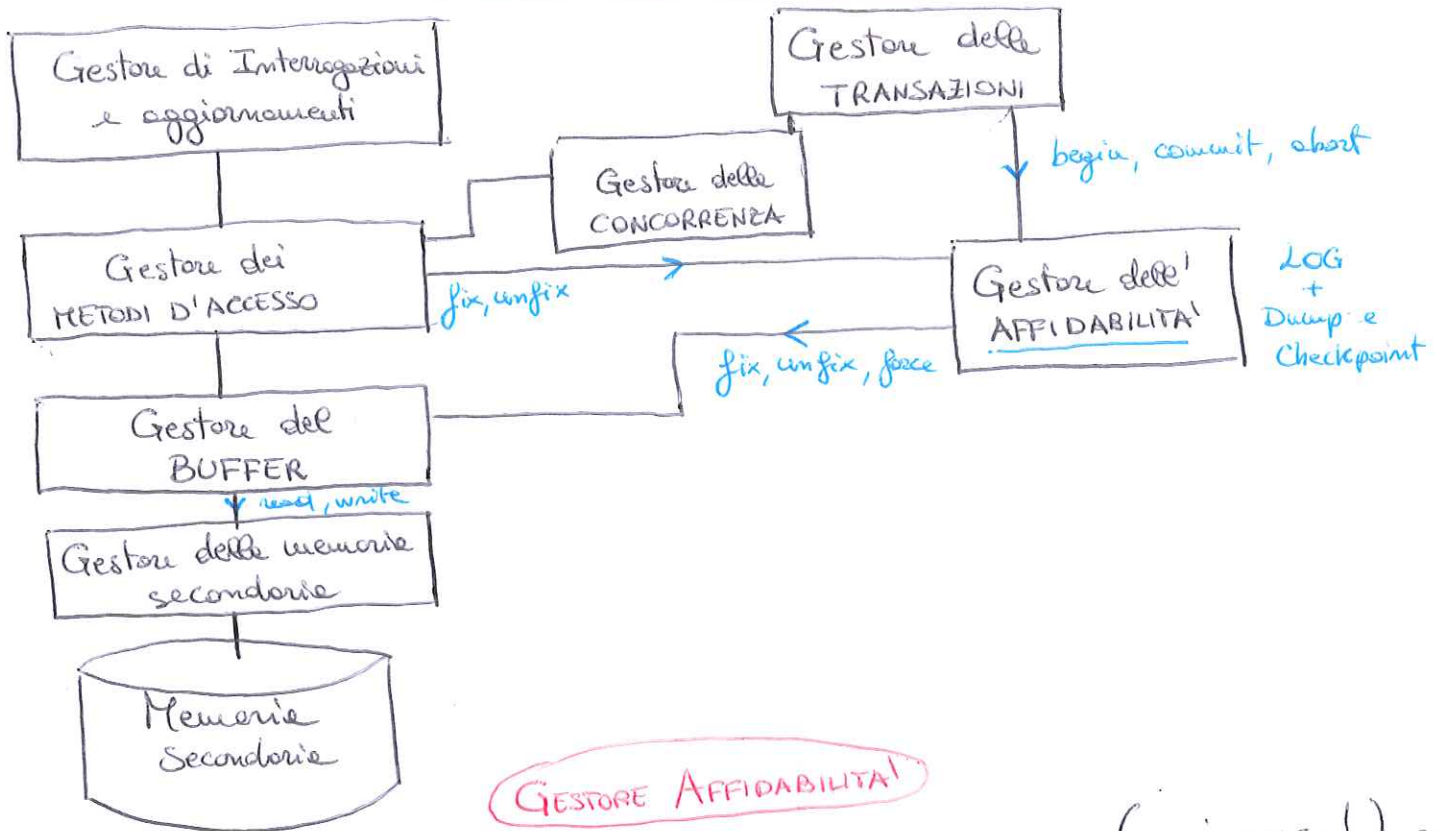 Gestore di Interrogazioni
e aggiornamenti
Gestore delle
TRANSAZIONI
begin, commit, abort
Gestore delle
CONCORRENZA
Gestore dei
METODI D'ACCESSO
fix, unfix
Gestore dell'
AFFIDABILITA'
LOG
+
Dump e
Checkpoint
fix, unfix, force
Gestore del
BUFFER
read, write
Gestore delle memorie
secondarie
Memoria
Secondaria
GESTORE AFFIDABILITA'